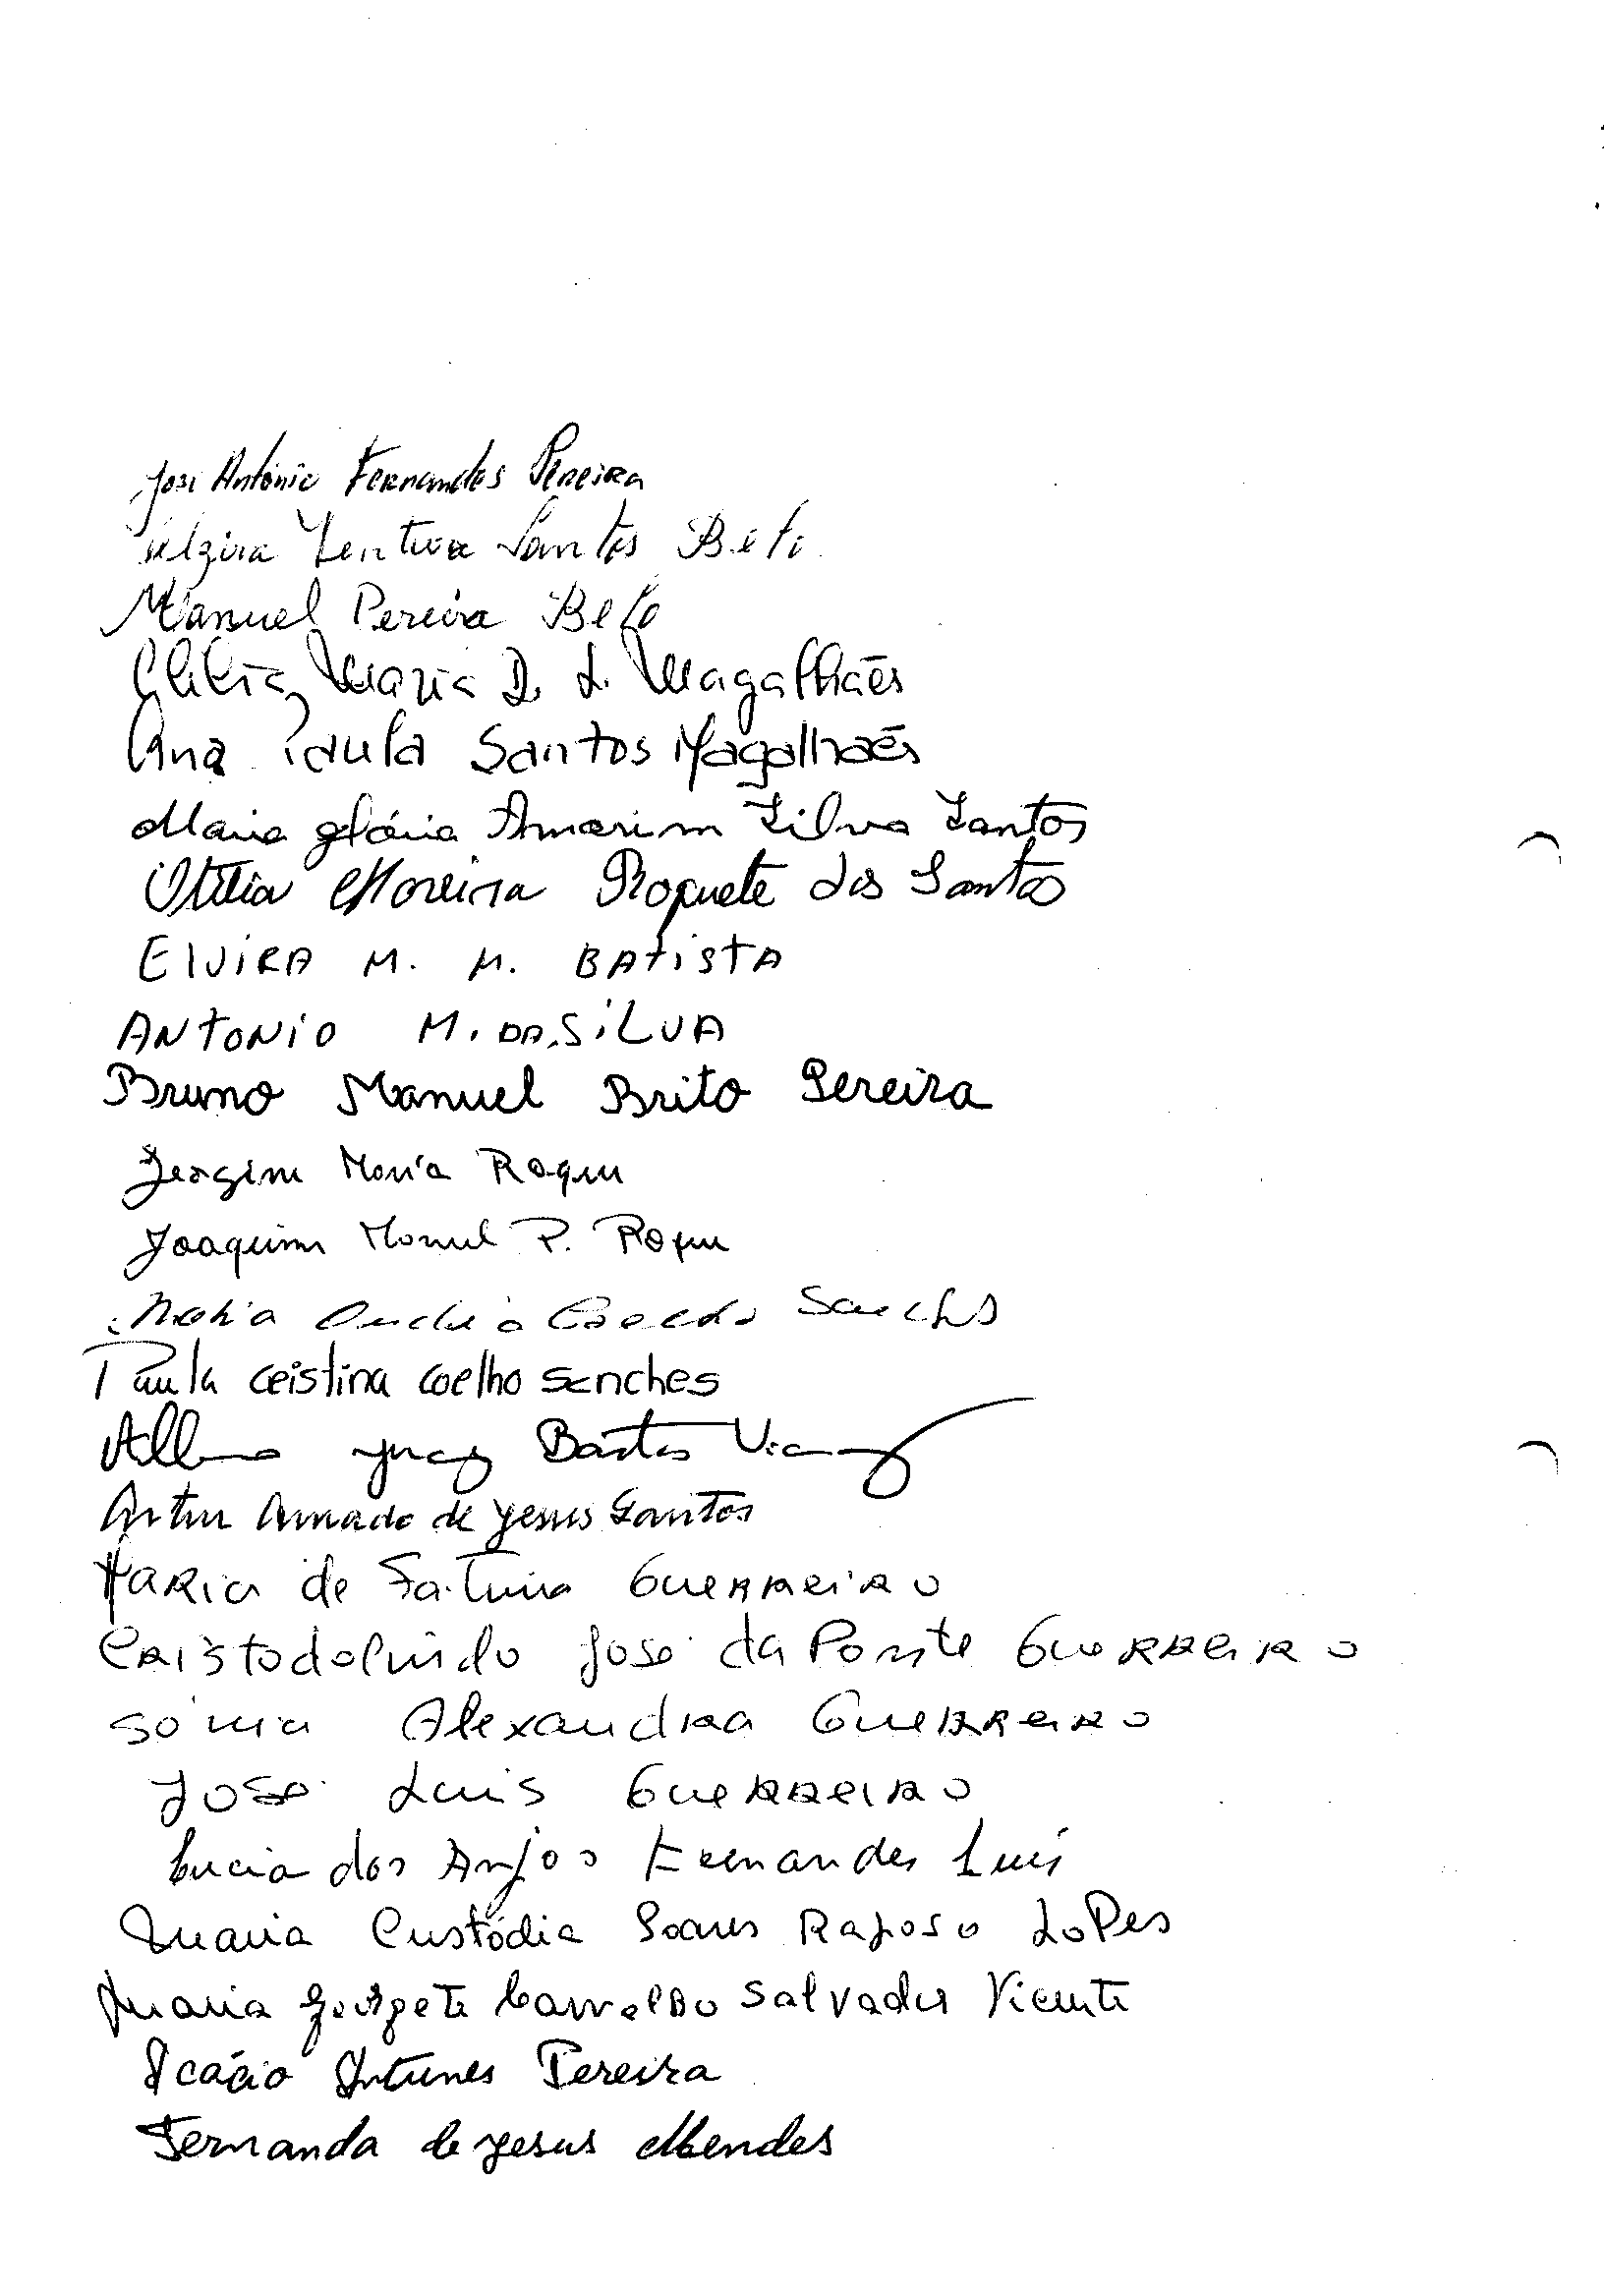 José António Fernandes Pereira
Ventura Santos Beto
Manuel Pereira Beto
Clélia Maria D. L. Magalhães
Ana Paula Santos Magalhães
Maria glória Amorim Silva Santos
Otília Moreira Roquete dos Santos
ElviRA M. M. BAtiSTA
ANTONiO M. DA SiLVA
Bruno Manuel Brito Pereira
Maria Roque
Joaquim Manuel P. Roque
Maria Coelho Sanches
Paula Cristina Coelho Sanches
Bastos
Artur Amado de Jesus Santos
Maria de Fatima Guerreiro
Cristodolindo José da Ponte Guerreiro
Sónia Alexandra Guerreiro
José Luis Guerreiro
Lucia dos Anjos Fernandes Luís
Maria Custódia Soares Raposo Lopes
Maria Georgete Salvador Vicente
Acácio Antunes Pereira
Fernanda de Jesus Mendes